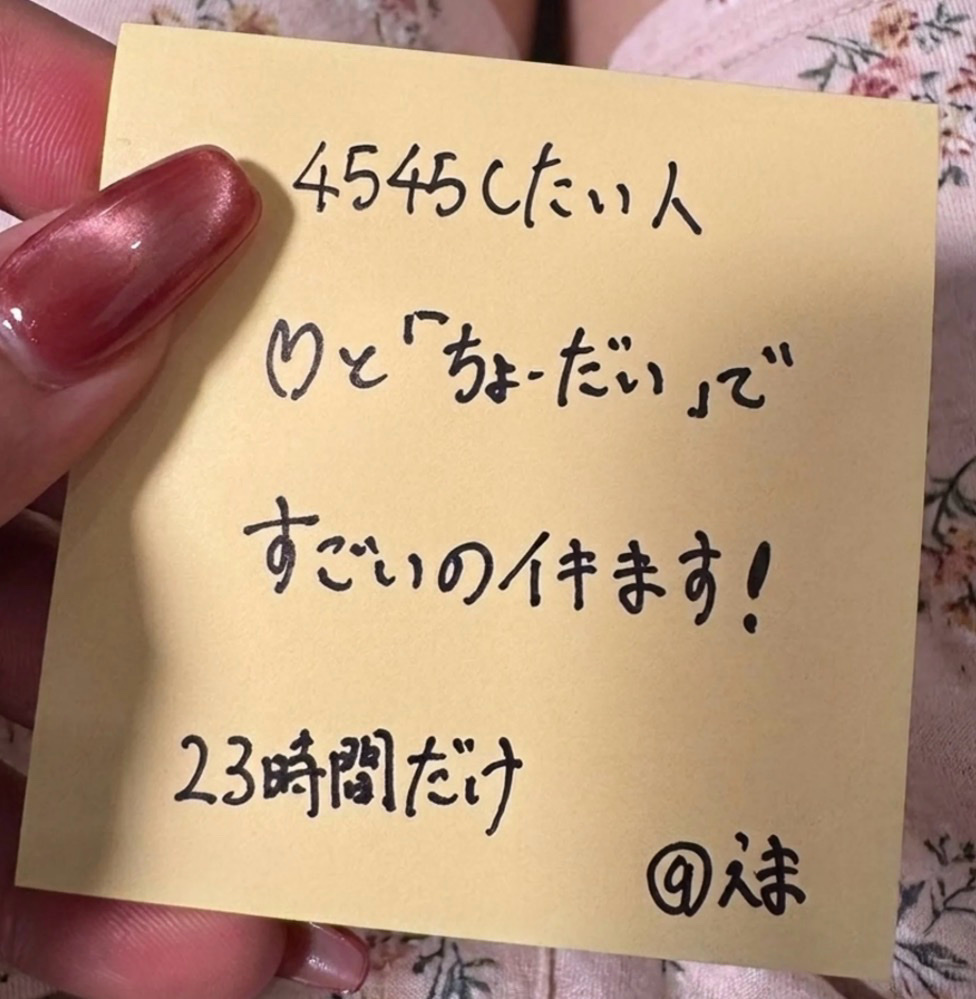 4545したい人
♡と「ちょーだい」で
すごいのイキます!
23時間だけ
@えま